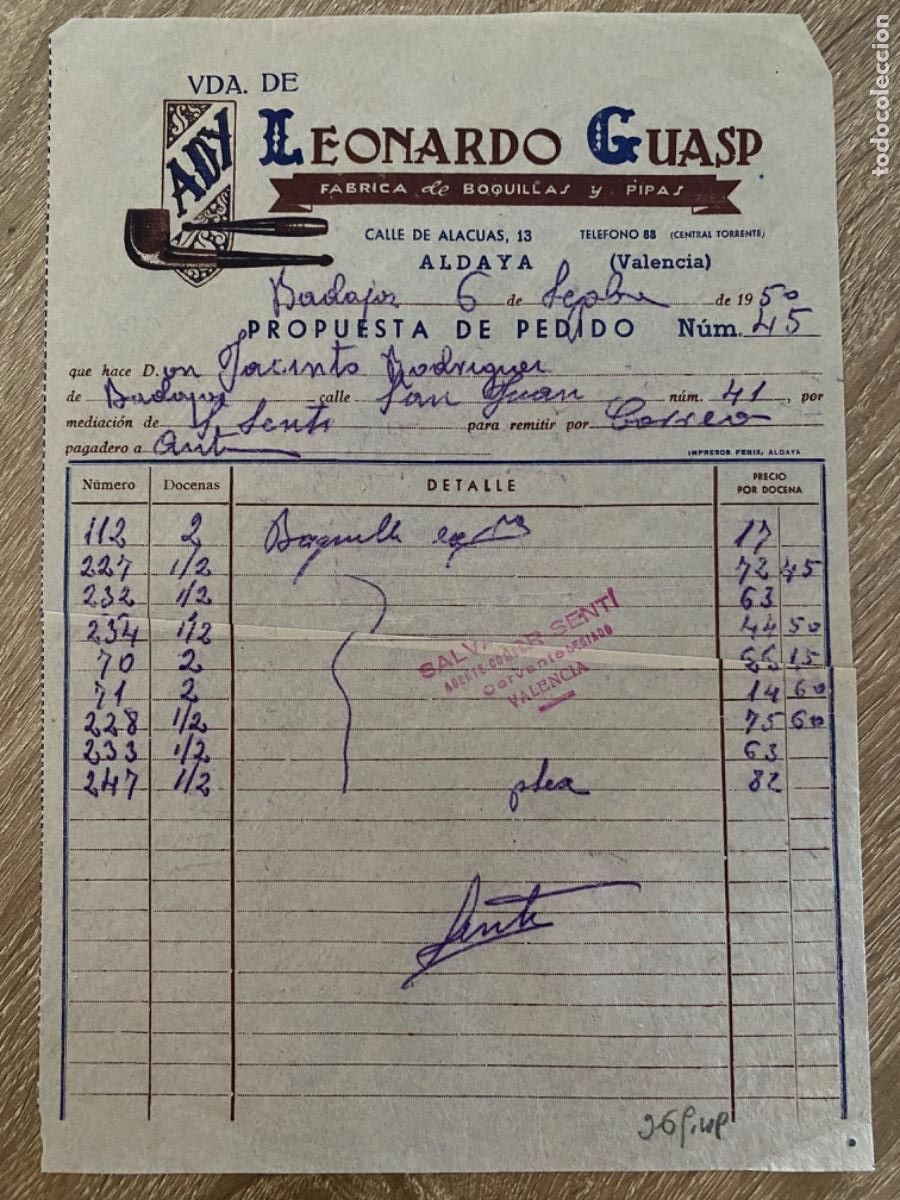 todocoleccion
VDA. DE
ADY
LEONARDO GUASP
FABRICA de BOQUILLAS y PIPAS
CALLE DE ALACUAS, 13 TELEFONO 88 (CENTRAL TORRENTE)
ALDAYA (Valencia)
Badajoz 6 de Sepbre de 1950
PROPUESTA DE PEDIDO Núm. 45
que hace D. on Jacinto Rodriguez
de Badajoz calle San Juan núm. 41, por
mediación de S. Senti para remitir por Correo
pagadero a
IMPRESOS FENIX, ALDAYA
Número Docenas DETALLE PRECIO POR DOCENA
112 2 Boquilla 17
227 1/2 72 45
232 1/2 63
234 1/2 44 50
70 2 15
71 2 14 60
228 1/2 75 60
233 1/2 63
247 1/2 82
SALVADOR SENTI
VALENCIA
Senti